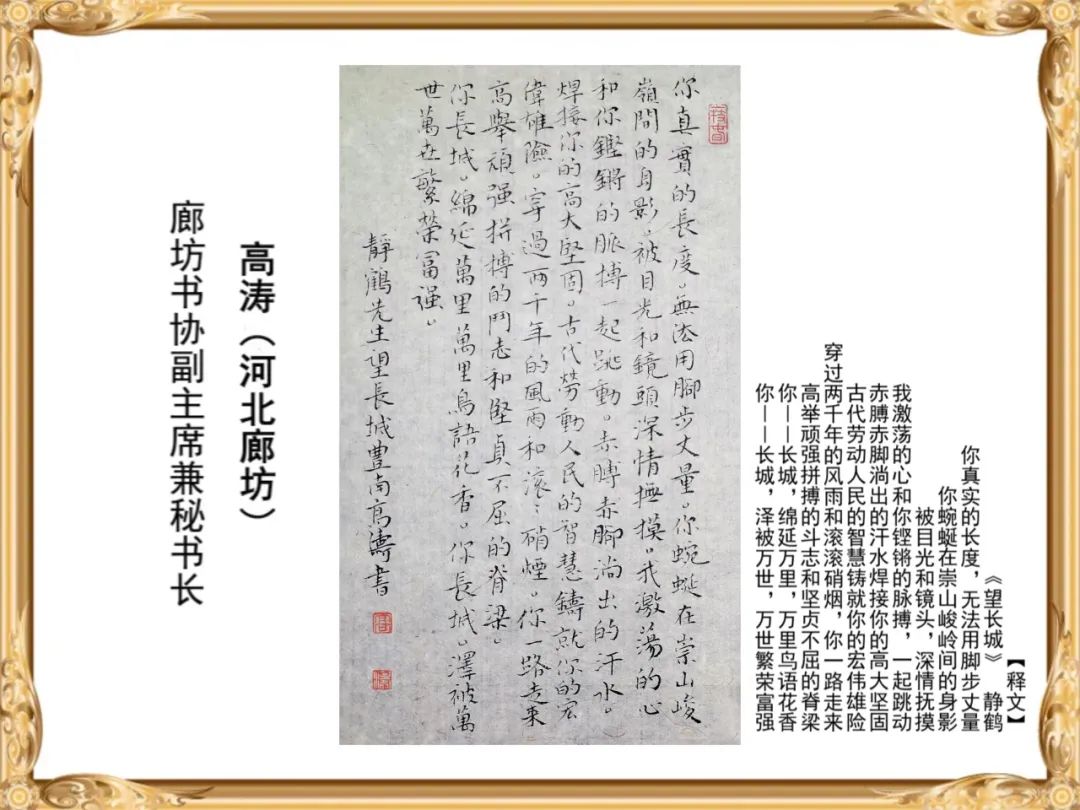 【释文】
《望长城》 静鹤
你真实的长度，无法用脚步丈量
你蜿蜒在崇山峻岭间的身影
被目光和镜头，深情抚摸
我激荡的心和你铿锵的脉搏，一起跳动
赤膊赤脚淌出的汗水焊接你的高大坚固
古代劳动人民的智慧铸就你的宏伟雄险
穿过两千年的风雨和滚滚硝烟，你一路走来
高举顽强拼搏的斗志和坚贞不屈的脊梁
你——长城，绵延万里，万里鸟语花香
你——长城，泽被万世，万世繁荣富强
你真實的長度。無法用腳步丈量。你蜿蜒在崇山峻
嶺間的身影。被目光和鏡頭深情撫摸。我激蕩的心
和你鏗鏘的脈搏一起跳動。赤膊赤腳淌出的汗水。
焊接你的高大堅固。古代勞動人民的智慧鑄就你的宏
偉雄險。穿過两千年的風雨和滚〻硝煙。你一路走来
高舉頑强拼搏的鬥志和堅貞不屈的脊梁。
你長城。綿延萬里萬里鳥語花香。你長城。澤被萬
世萬世繁榮冨强。
靜鶴先生望長城豊南高濤書
高涛（河北廊坊）
廊坊书协副主席兼秘书长